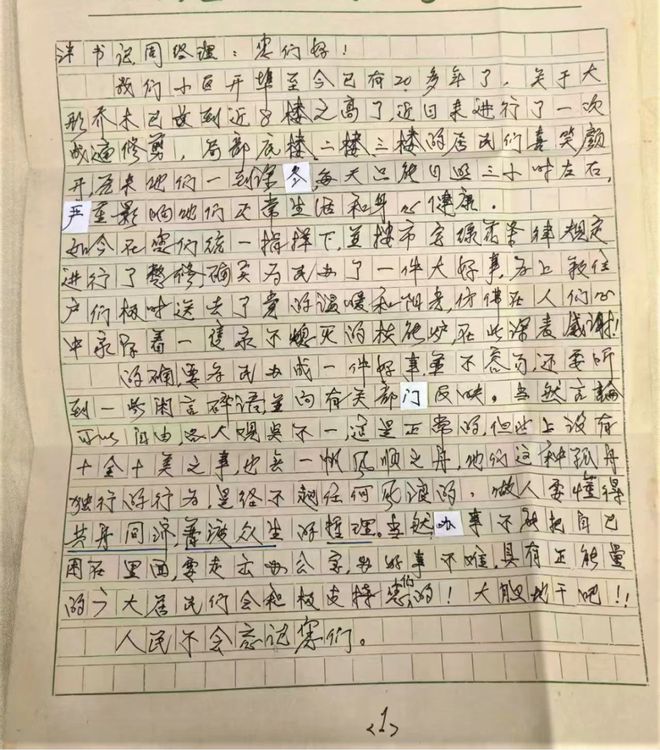 沣书记周经理:您们好!
我们小区开埠至今已有20多年了,关于大
形乔木已放到近8楼之高了,近日来进行了一次
修剪,局部底楼、二楼三楼的居民们喜笑颜
开,原来他们一到深冬,每天只能日照三小时左右,
严重影响他们正常生活和身心健康。
如今在您们统一指挥下,并按市字绿营条律规定
进行了整修,确实为民办了一件大好事,为上敦住
户们及时送去了党的温暖和阳光,仿佛在人们心
中永存着一速永不熄灭的核能炉在此深表感谢!
的确,要为民办成一件好事来不容易,还要听
到一些闲言碎语並向有关部门反映。当然言論
可以自由,各人观点不一,这是正常的,但世上没有
十全十美之事也無一帆风顺之舟,他们这种孤舟
独行的行为,是经不起任何风浪的,做人要懂得
共舟同济,普渡众生的哲理。当然办事不能把自己
困在里面,要走出办公室,为好事不难,具有正能量
的广大居民们会积极支持您们的!大胆地干吧!!
人民不会忘记您们。
<1>